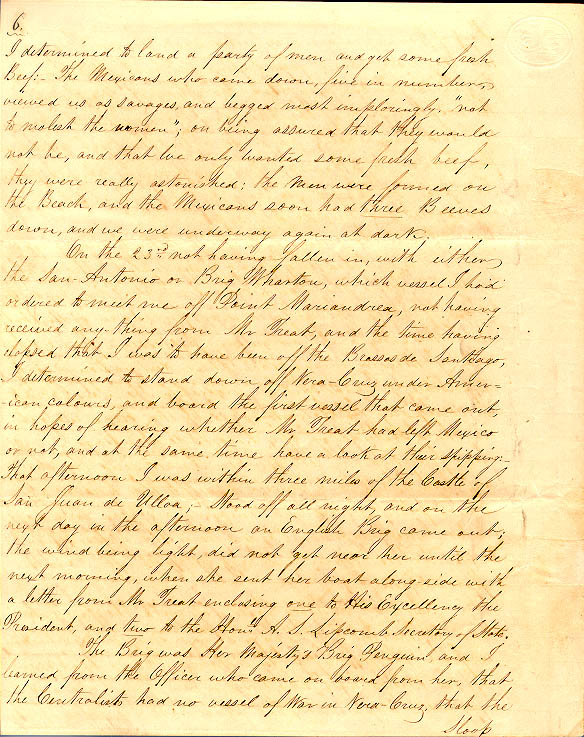 6.
I determined to land a party of men and get some fresh
Beef:- The Mexicans who came down, five in number,
viewed us as savages, and begged most imploringly, "not
to molest the women"; on being assured that they would
not be, and that we only wanted some fresh beef,
they were really astonished: the men were formed on
the Beach, and the Mexicans soon had three Beeves
down, and we were underway again at dark.
On the 23rd not having fallen in, with either
the San-Antonio or Brig Wharton, which vessel I had
ordered to meet me off Point Mariandrea, not having
received any-thing from Mr Treat, and the time having
elapsed that I was to have been off the Brassos de Santiago,
I determined to stand down off Vera-Cruz under Amer-
-ican colours, and board the first vessel that came out,
in hopes of hearing whether Mr Treat had left Mexico
or not, and at the same time have a look at their shipping:-
that afternoon I was within three miles of the Castle of
San Juan de Ulloa;- Stood off all night, and on the
next day in the afternoon an English Brig came out;
the wind being light, did not get near her until the
next morning, when she sent her boat along-side with
a letter from Mr Treat enclosing one to His Excellency the
President, and two to the Honl. A. S. Lipcomb Secretary of State.
The Brig was Her Majesty's Brig Penguin and I
learned from the Officer who came on board from her, that
the Centralists had no vessel of War in Vera-Cruz, that the
Sloop